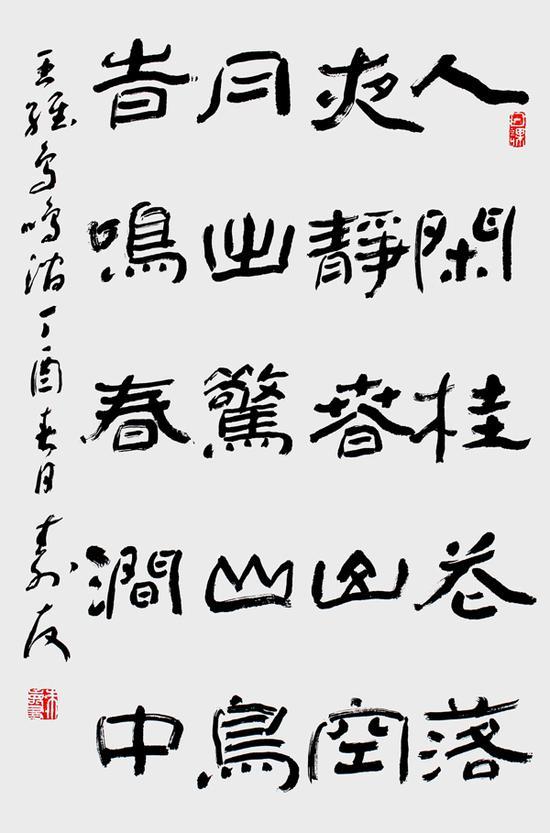 人閑桂花落
夜靜春山空
月出驚山鳥
旹鳴春澗中
王維鳥鳴澗丁酉春月寿友